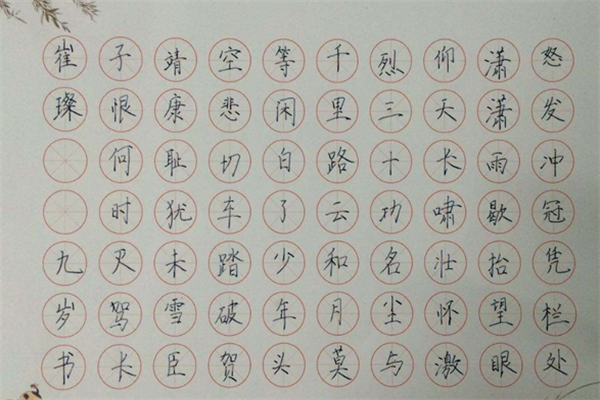 怒发冲冠凭栏处
潇潇雨歇抬望眼
仰天长啸壮怀激
烈三十功名尘与
千里路云和月莫
等闲白了少年头
空悲切车踏破贺
靖康耻犹未雪臣
子恨何时灭驾长
崔璨九岁书